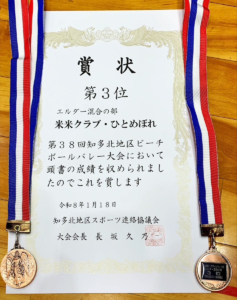 賞状
第３位
エルダー混合の部
米米クラブ・ひとめぼれ
第３８回知多北地区ビーチ
ボールバレー大会において
頭書の成績を収められまし
たのでこれを賞します
令和８年１月１８日
知多北地区スポーツ連絡協議会
大会会長 長坂久乃